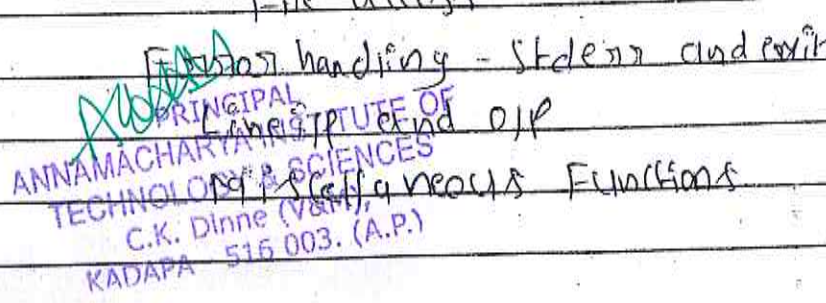 Error handling - Stderr and exit
Line I/P and O/P
Miscellaneous Functions
PRINCIPAL
ANNAMACHARYA INSTITUTE OF
TECHNOLOGY & SCIENCES
C.K. Dinne (V&M),
KADAPA - 516 003. (A.P.)